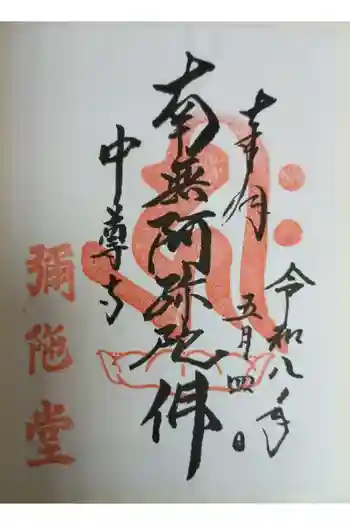 奉拝
令和八年
五月四日
南無阿弥陀佛
中尊寺
彌陀堂